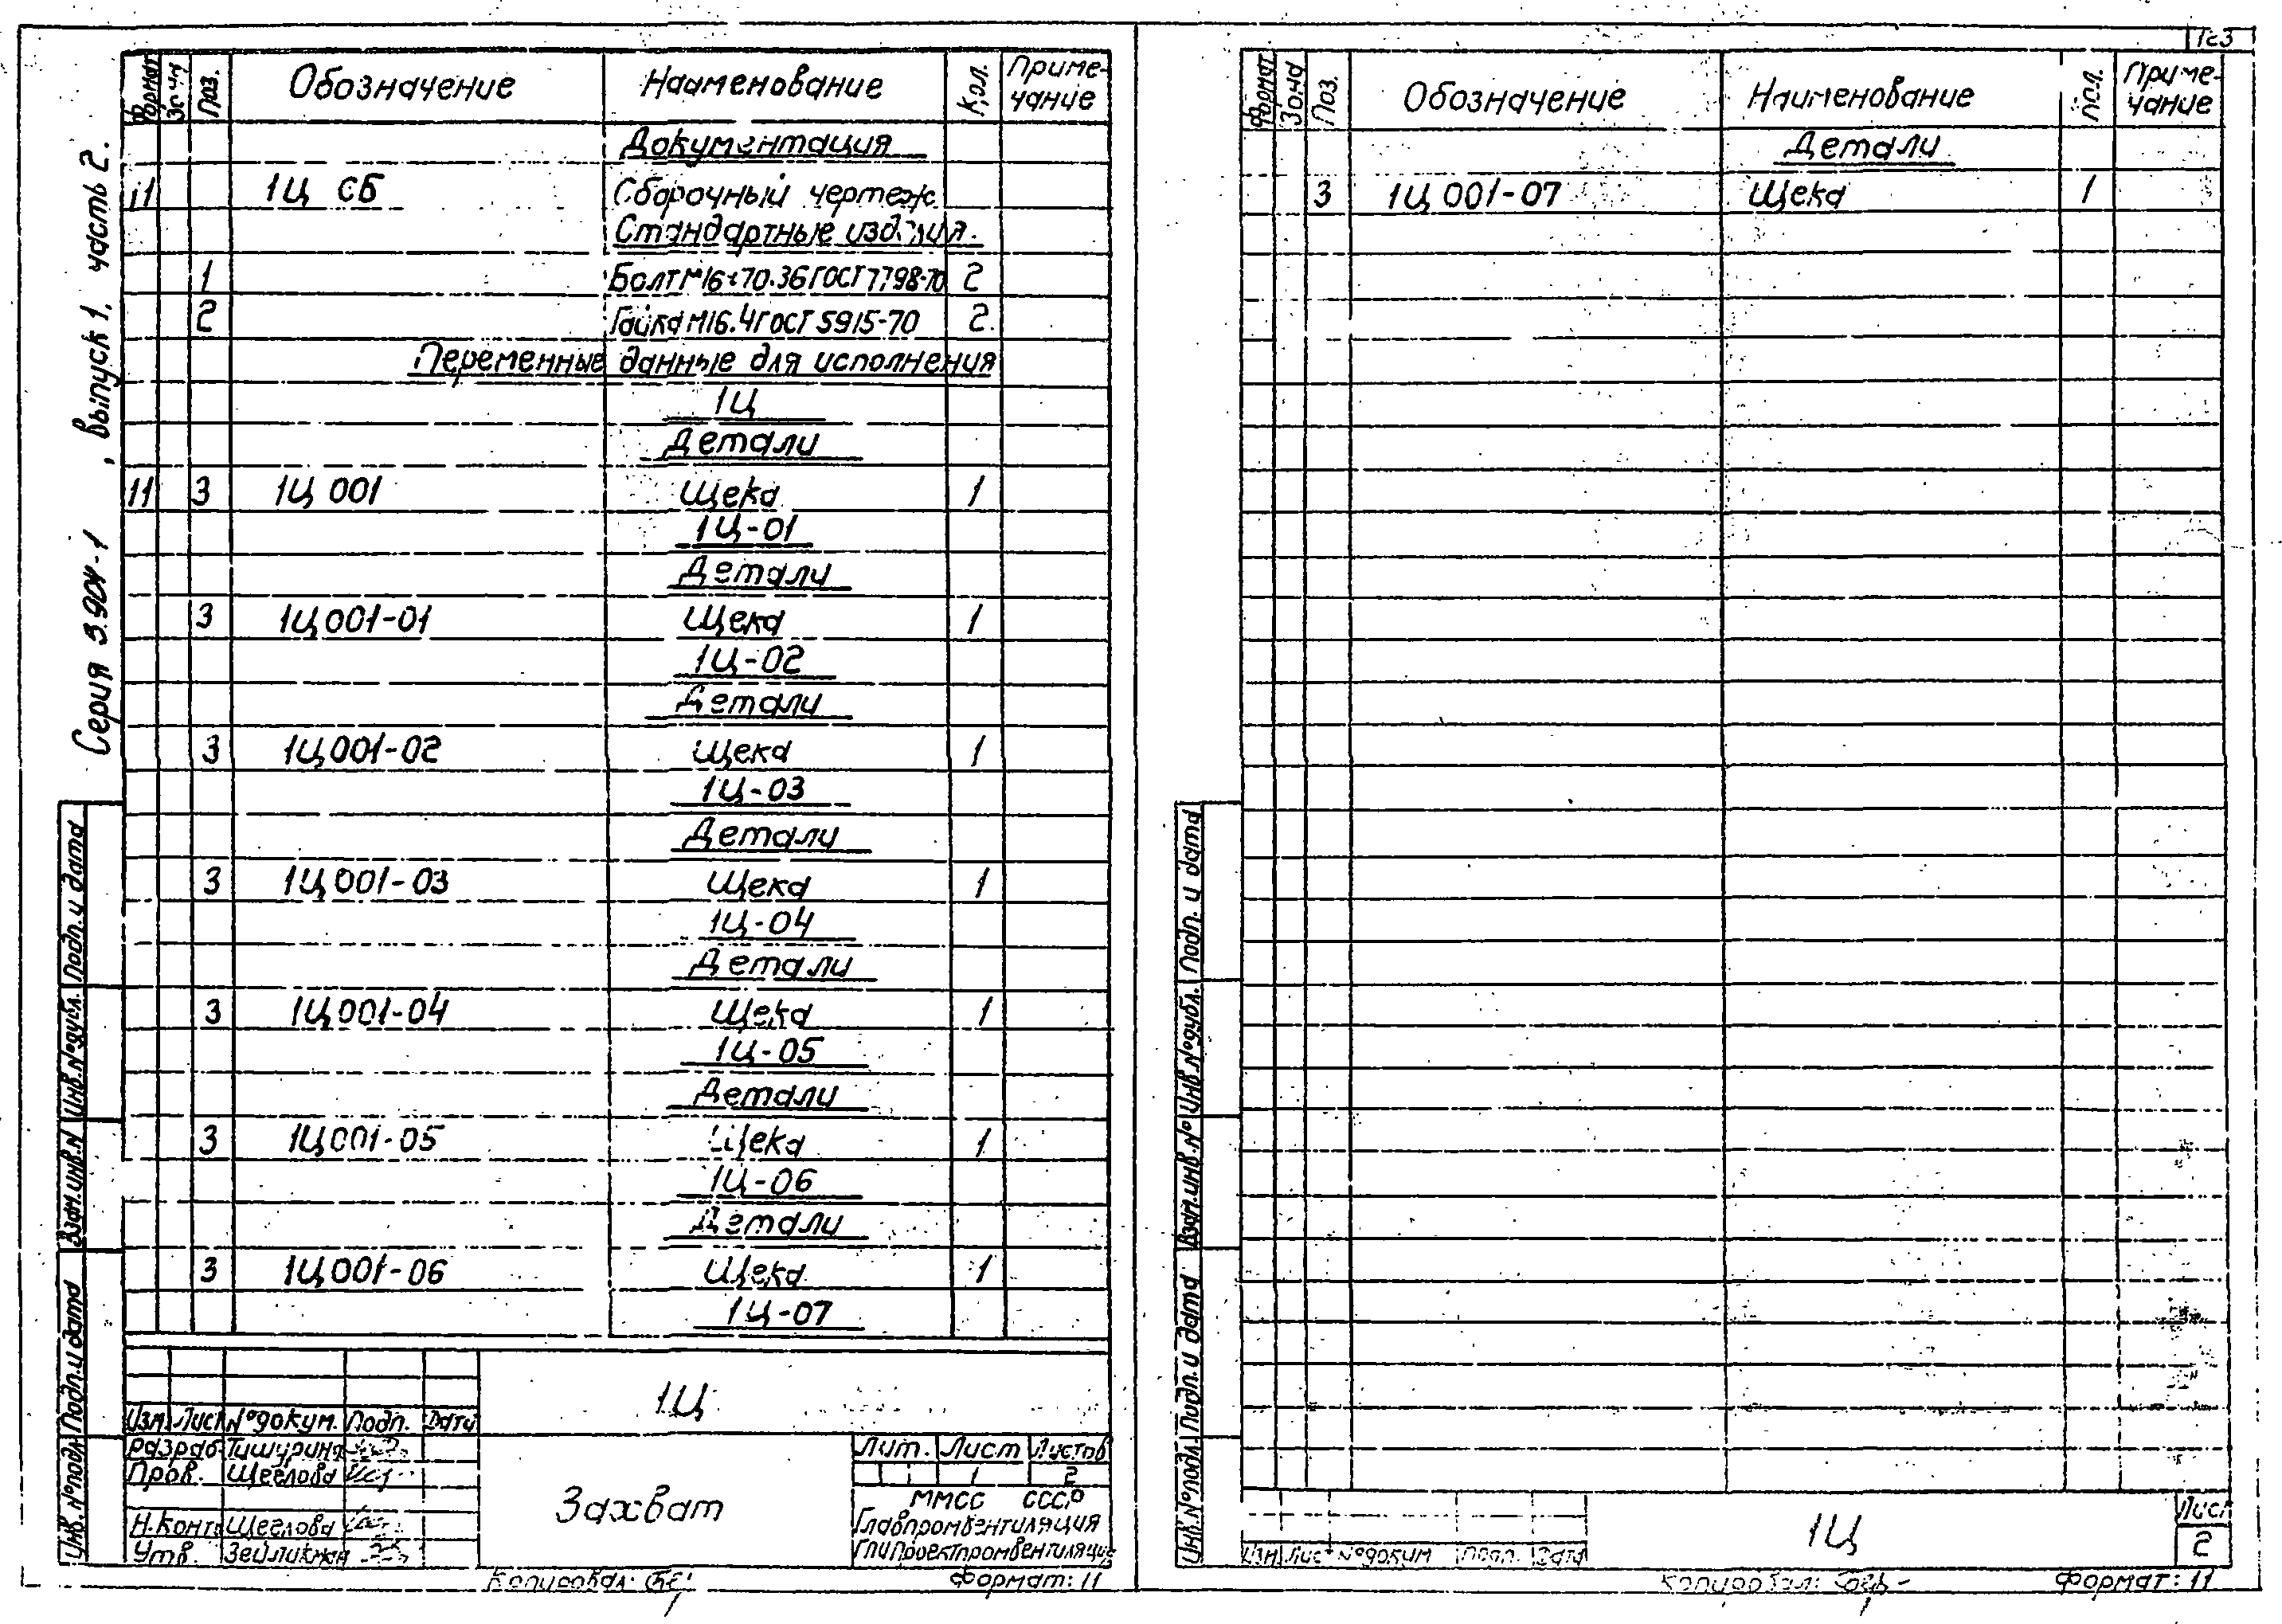 Серия 3.904-1 , выпуск 1, часть 2.
Формат Зона Поз. Обозначение Наименование Кол. Приме-
чание
Документация
11 1Ц СБ Сборочный чертеж
Стандартные изделия.
1 Болт М16×70.36 ГОСТ 7798-70 2
2 Гайка М16.4 ГОСТ 5915-70 2.
Переменные данные для исполнения
1Ц
Детали
11 3 1Ц 001 Щека 1
1Ц-01
Детали
3 1Ц001-01 Щека 1
1Ц-02
Детали
3 1Ц001-02 Щека 1
1Ц-03
Детали
3 1Ц001-03 Щека 1
1Ц-04
Детали
3 1Ц001-04 Щека 1
1Ц-05
Детали
3 1Ц001-05 Щека 1
1Ц-06
Детали
3 1Ц001-06 Щека 1
1Ц-07
Инв.№подл. Подп.и дата Взам.инв.№ Инв.№дубл. Подп. и дата
Изм. Лист №докум. Подп. Дата
Разраб. Тишурина
Пров. Щеглова
Н.Контр Щеглова
Утв. Зейликман
1Ц
Захват
Лит. Лист Листов
1 2
ММСС СССР
Главпромвентиляция
ГПИ Проектпромвентиляция
Копировал: Формат: 11
Формат Зона Поз. Обозначение Наименование Кол. Приме-
чание
Детали
3 1Ц 001-07 Щека 1
Инв.№подл. Подп. и дата Взам.инв.№ Инв.№дубл. Подп. и дата
Изм Лист №докум Подп. Дата
1Ц
Лист
2
Копировал: Формат: 11